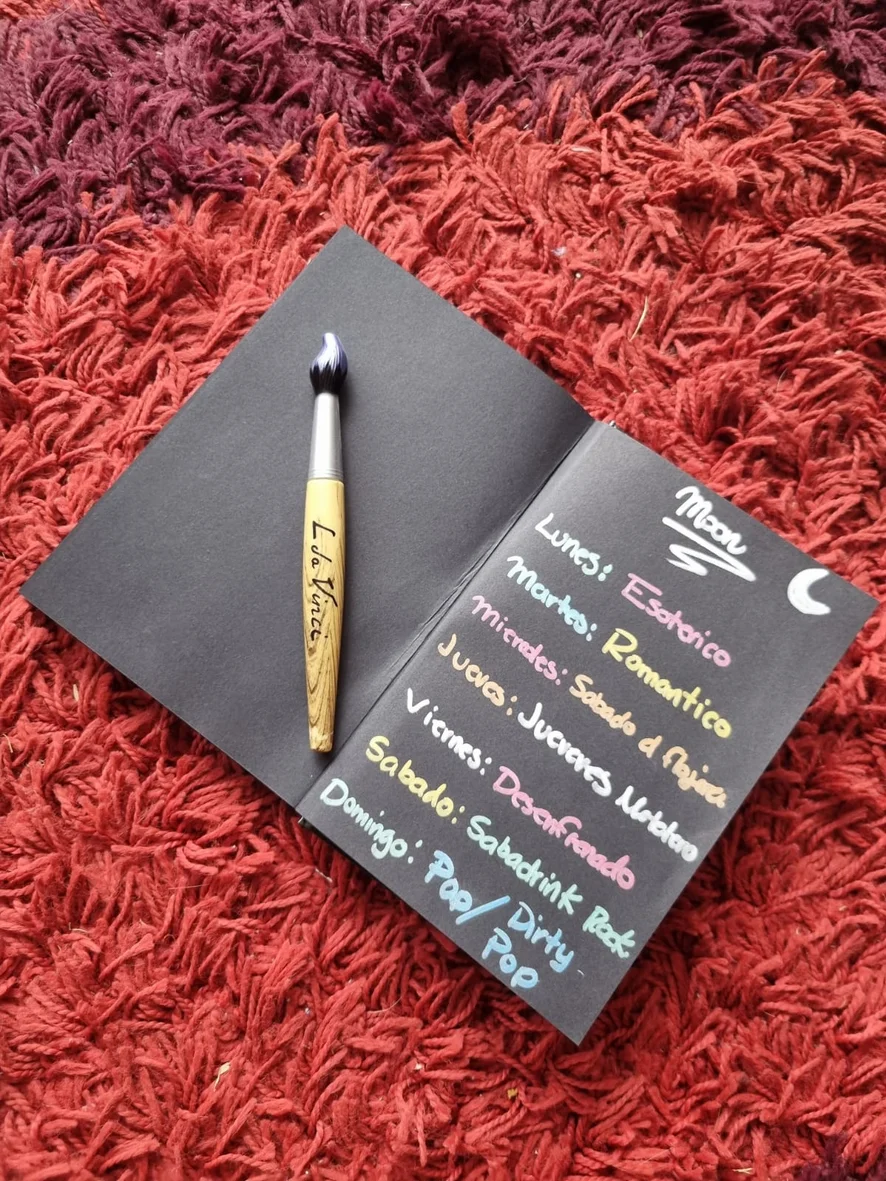 L da Vinci
Moon
Lunes: Esoterico
Martes: Romantico
Miercoles: Sabado d
Jueves: Jueveves
Viernes: Desenfrenado
Sabado: Sabadrink Rock
Domingo: Pop/Dirty
Pop